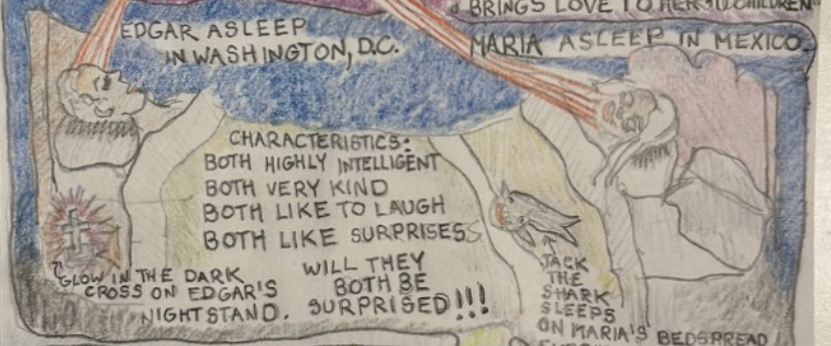 BRINGS LOVE TO HER CHILDREN"
EDGAR ASLEEP
IN WASHINGTON, D.C.
MARIA ASLEEP IN MEXICO.
CHARACTERISTICS:
BOTH HIGHLY INTELLIGENT
BOTH VERY KIND
BOTH LIKE TO LAUGH
BOTH LIKE SURPRISES
WILL THEY
BOTH BE
SURPRISED!!!
GLOW IN THE DARK
CROSS ON EDGAR'S
NIGHTSTAND.
JACK
THE
SHARK
SLEEPS
ON MARIA'S BEDSPREAD